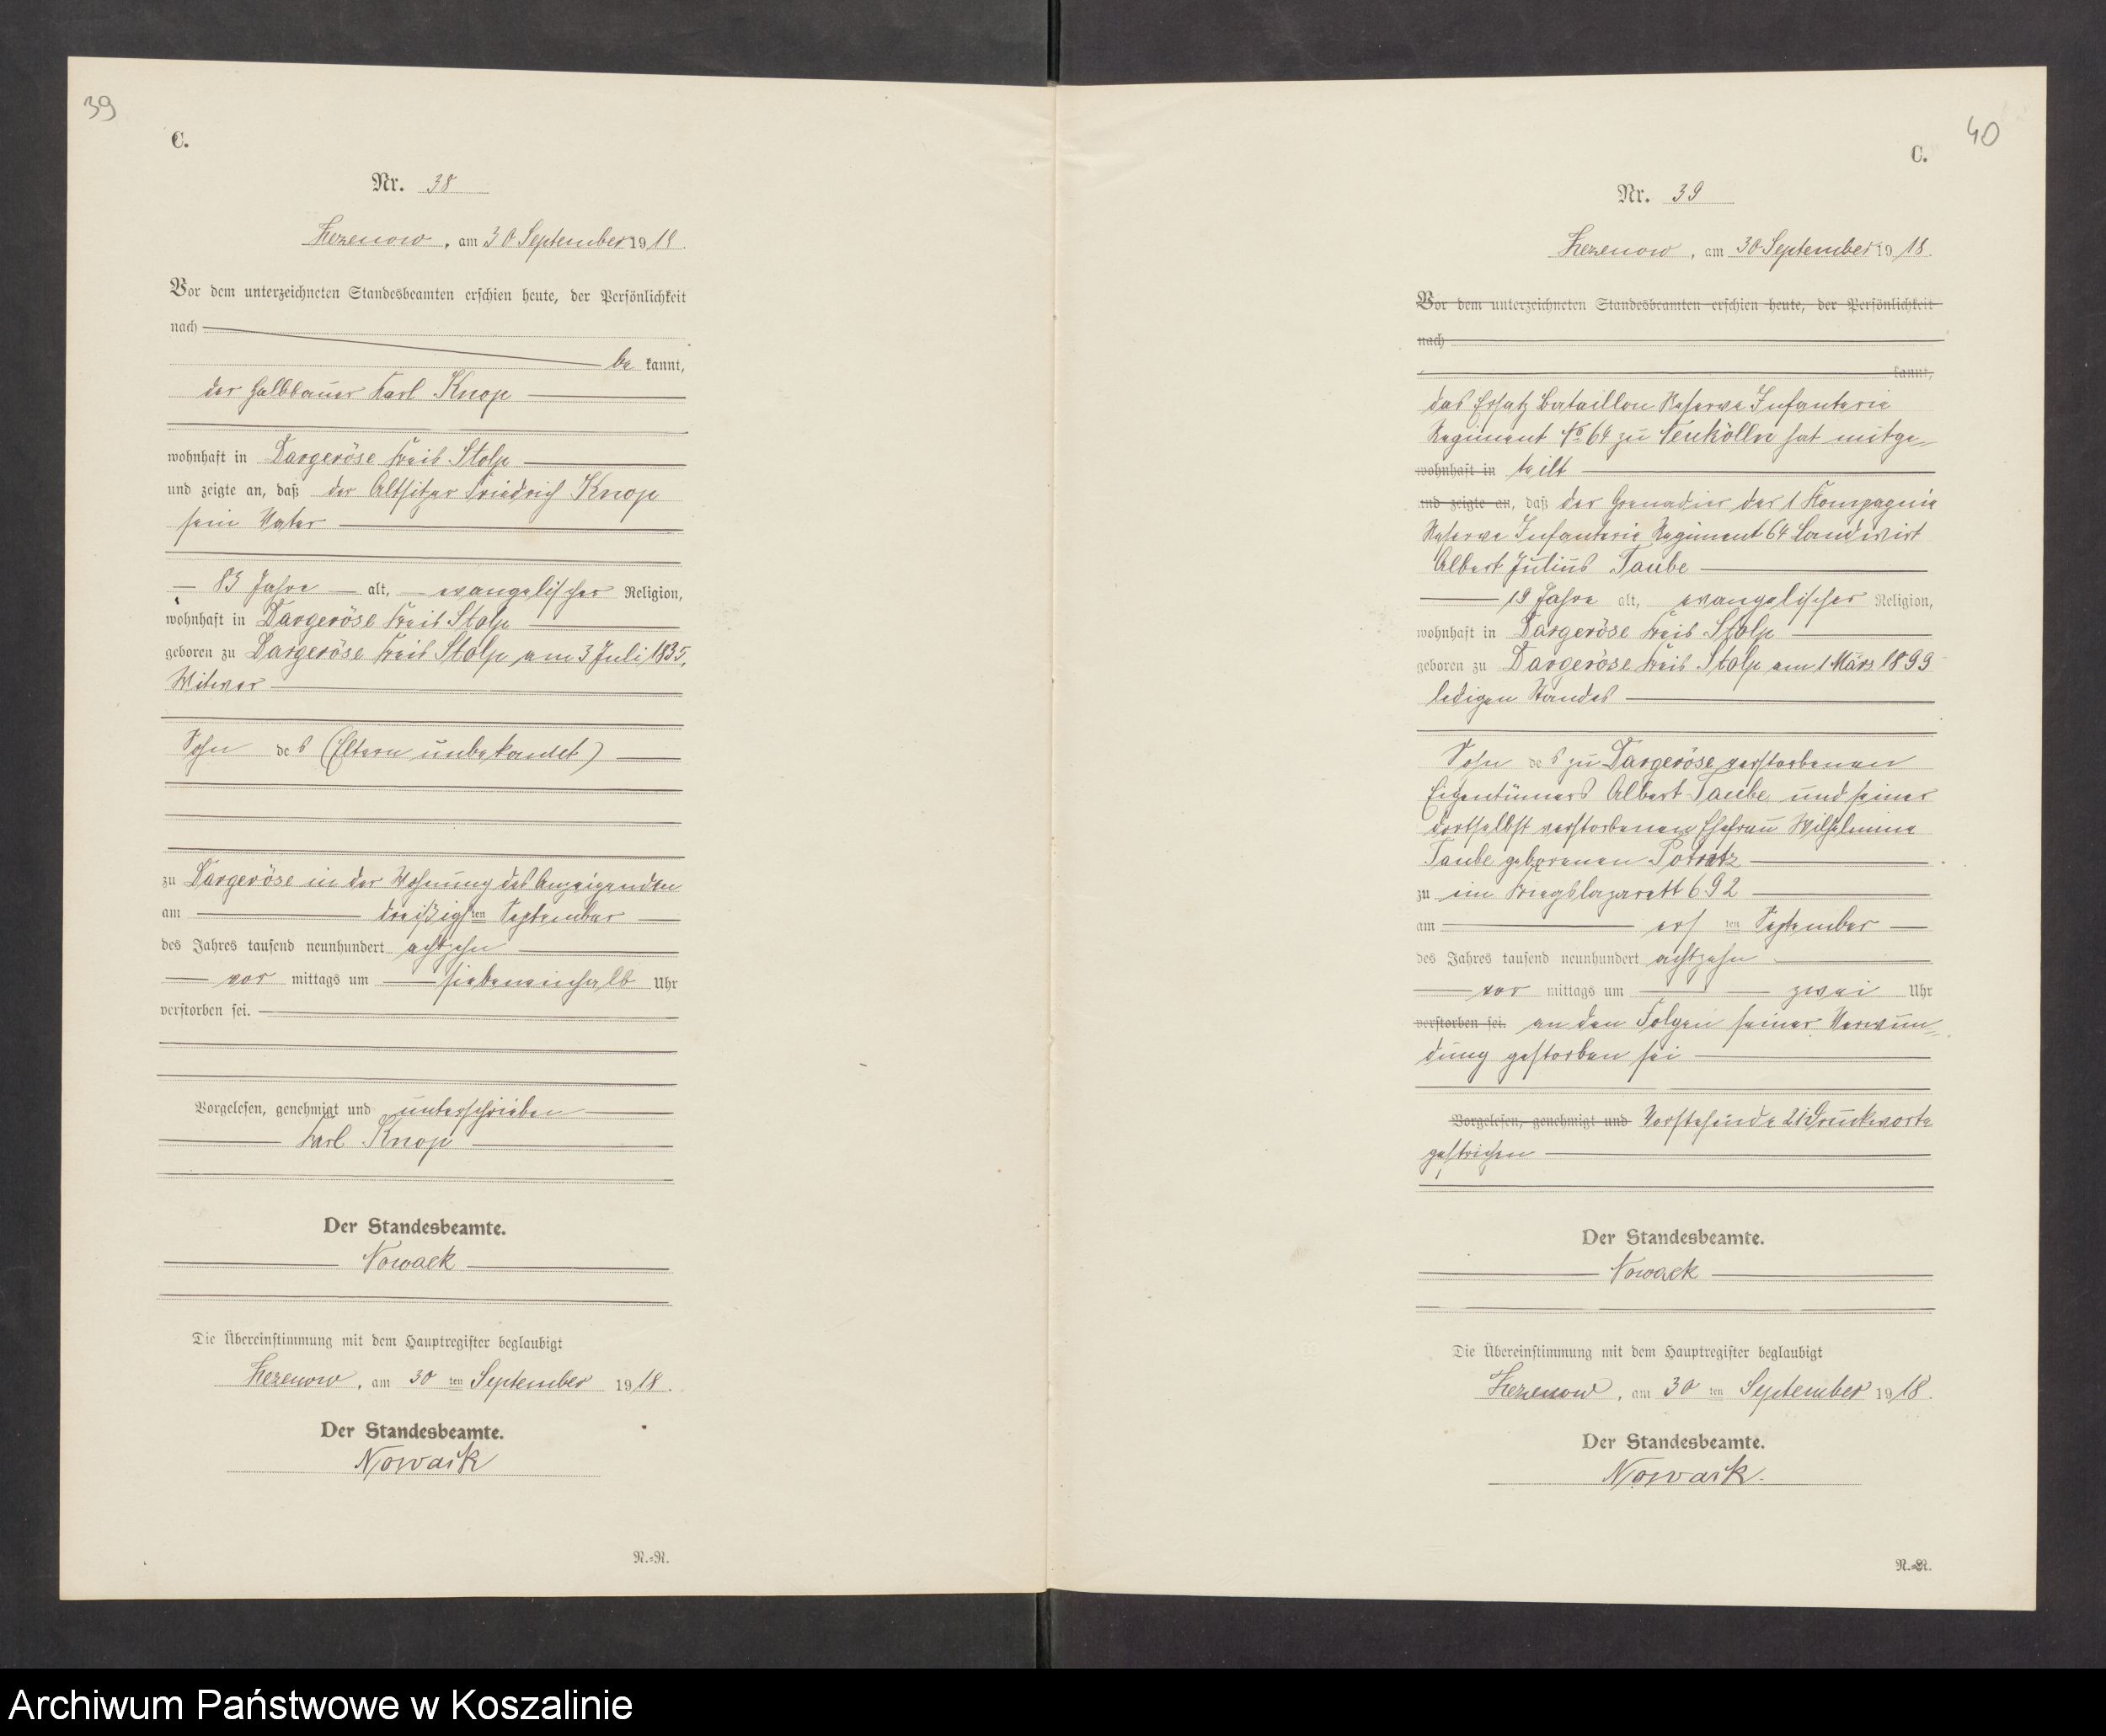 39
C.
Nr. 38
Zezenow, am 30 September 1918.
Vor dem unterzeichneten Standesbeamten erschien heute, der Persönlichkeit
nach
be kannt,
der Halbbauer Karl Knop
wohnhaft in Dargeröse Kreis Stolp
und zeigte an, daß der Altsitzer Friedrich Knop
sein Vater
83 Jahre alt, evangelischer Religion,
wohnhaft in Dargeröse Kreis Stolp
geboren zu Dargeröse Kreis Stolp am 3 Juli 1835,
Witwer
Sohn des (Eltern unbekannt)
zu Dargeröse in der Wohnung des Anzeigenden
am dreißigsten September
des Jahres tausend neunhundert achtzehn
vor mittags um siebeneinhalb Uhr
verstorben sei.
Vorgelesen, genehmigt und unterschrieben
Karl Knop
Der Standesbeamte.
Nowack
Die Übereinstimmung mit dem Hauptregister beglaubigt
Zezenow, am 30 ten September 1918.
Der Standesbeamte.
Nowack
N.=N.
40
C.
Nr. 39
Zezenow, am 30 September 1918.
Vor dem unterzeichneten Standesbeamten erschien heute, der Persönlichkeit
nach
kannt,
das Ersatz Bataillon Reserve Infanterie
Regiment No 64 zu Neukölln hat mitge-
wohnhaft in teilt
und zeigte an, daß der Grenadier der 1 Kompagnie
Reserve Infanterie Regiment 64 Landwirt
Albert Julius Taube
19 Jahre alt, evangelischer Religion,
wohnhaft in Dargeröse Kreis Stolp
geboren zu Dargeröse Kreis Stolp am 1 März 1899
ledigen Standes
Sohn des zu Dargeröse verstorbenen
Eigentümers Albert Taube und seiner
dortselbst verstorbenen Ehefrau Wilhelmine
Taube geborenen Potratz
zu im Kriegslazarett 692
am ers ten September
des Jahres tausend neunhundert achtzehn
vor mittags um zwei Uhr
verstorben sei. an den Folgen seiner Verwun-
dung gestorben sei
Vorgelesen, genehmigt und Vorstehende 21 Druckworte
gestrichen
Der Standesbeamte.
Nowack
Die Übereinstimmung mit dem Hauptregister beglaubigt
Zezenow, am 30 ten September 1918.
Der Standesbeamte.
Nowack.
N.=N.
Archiwum Państwowe w Koszalinie